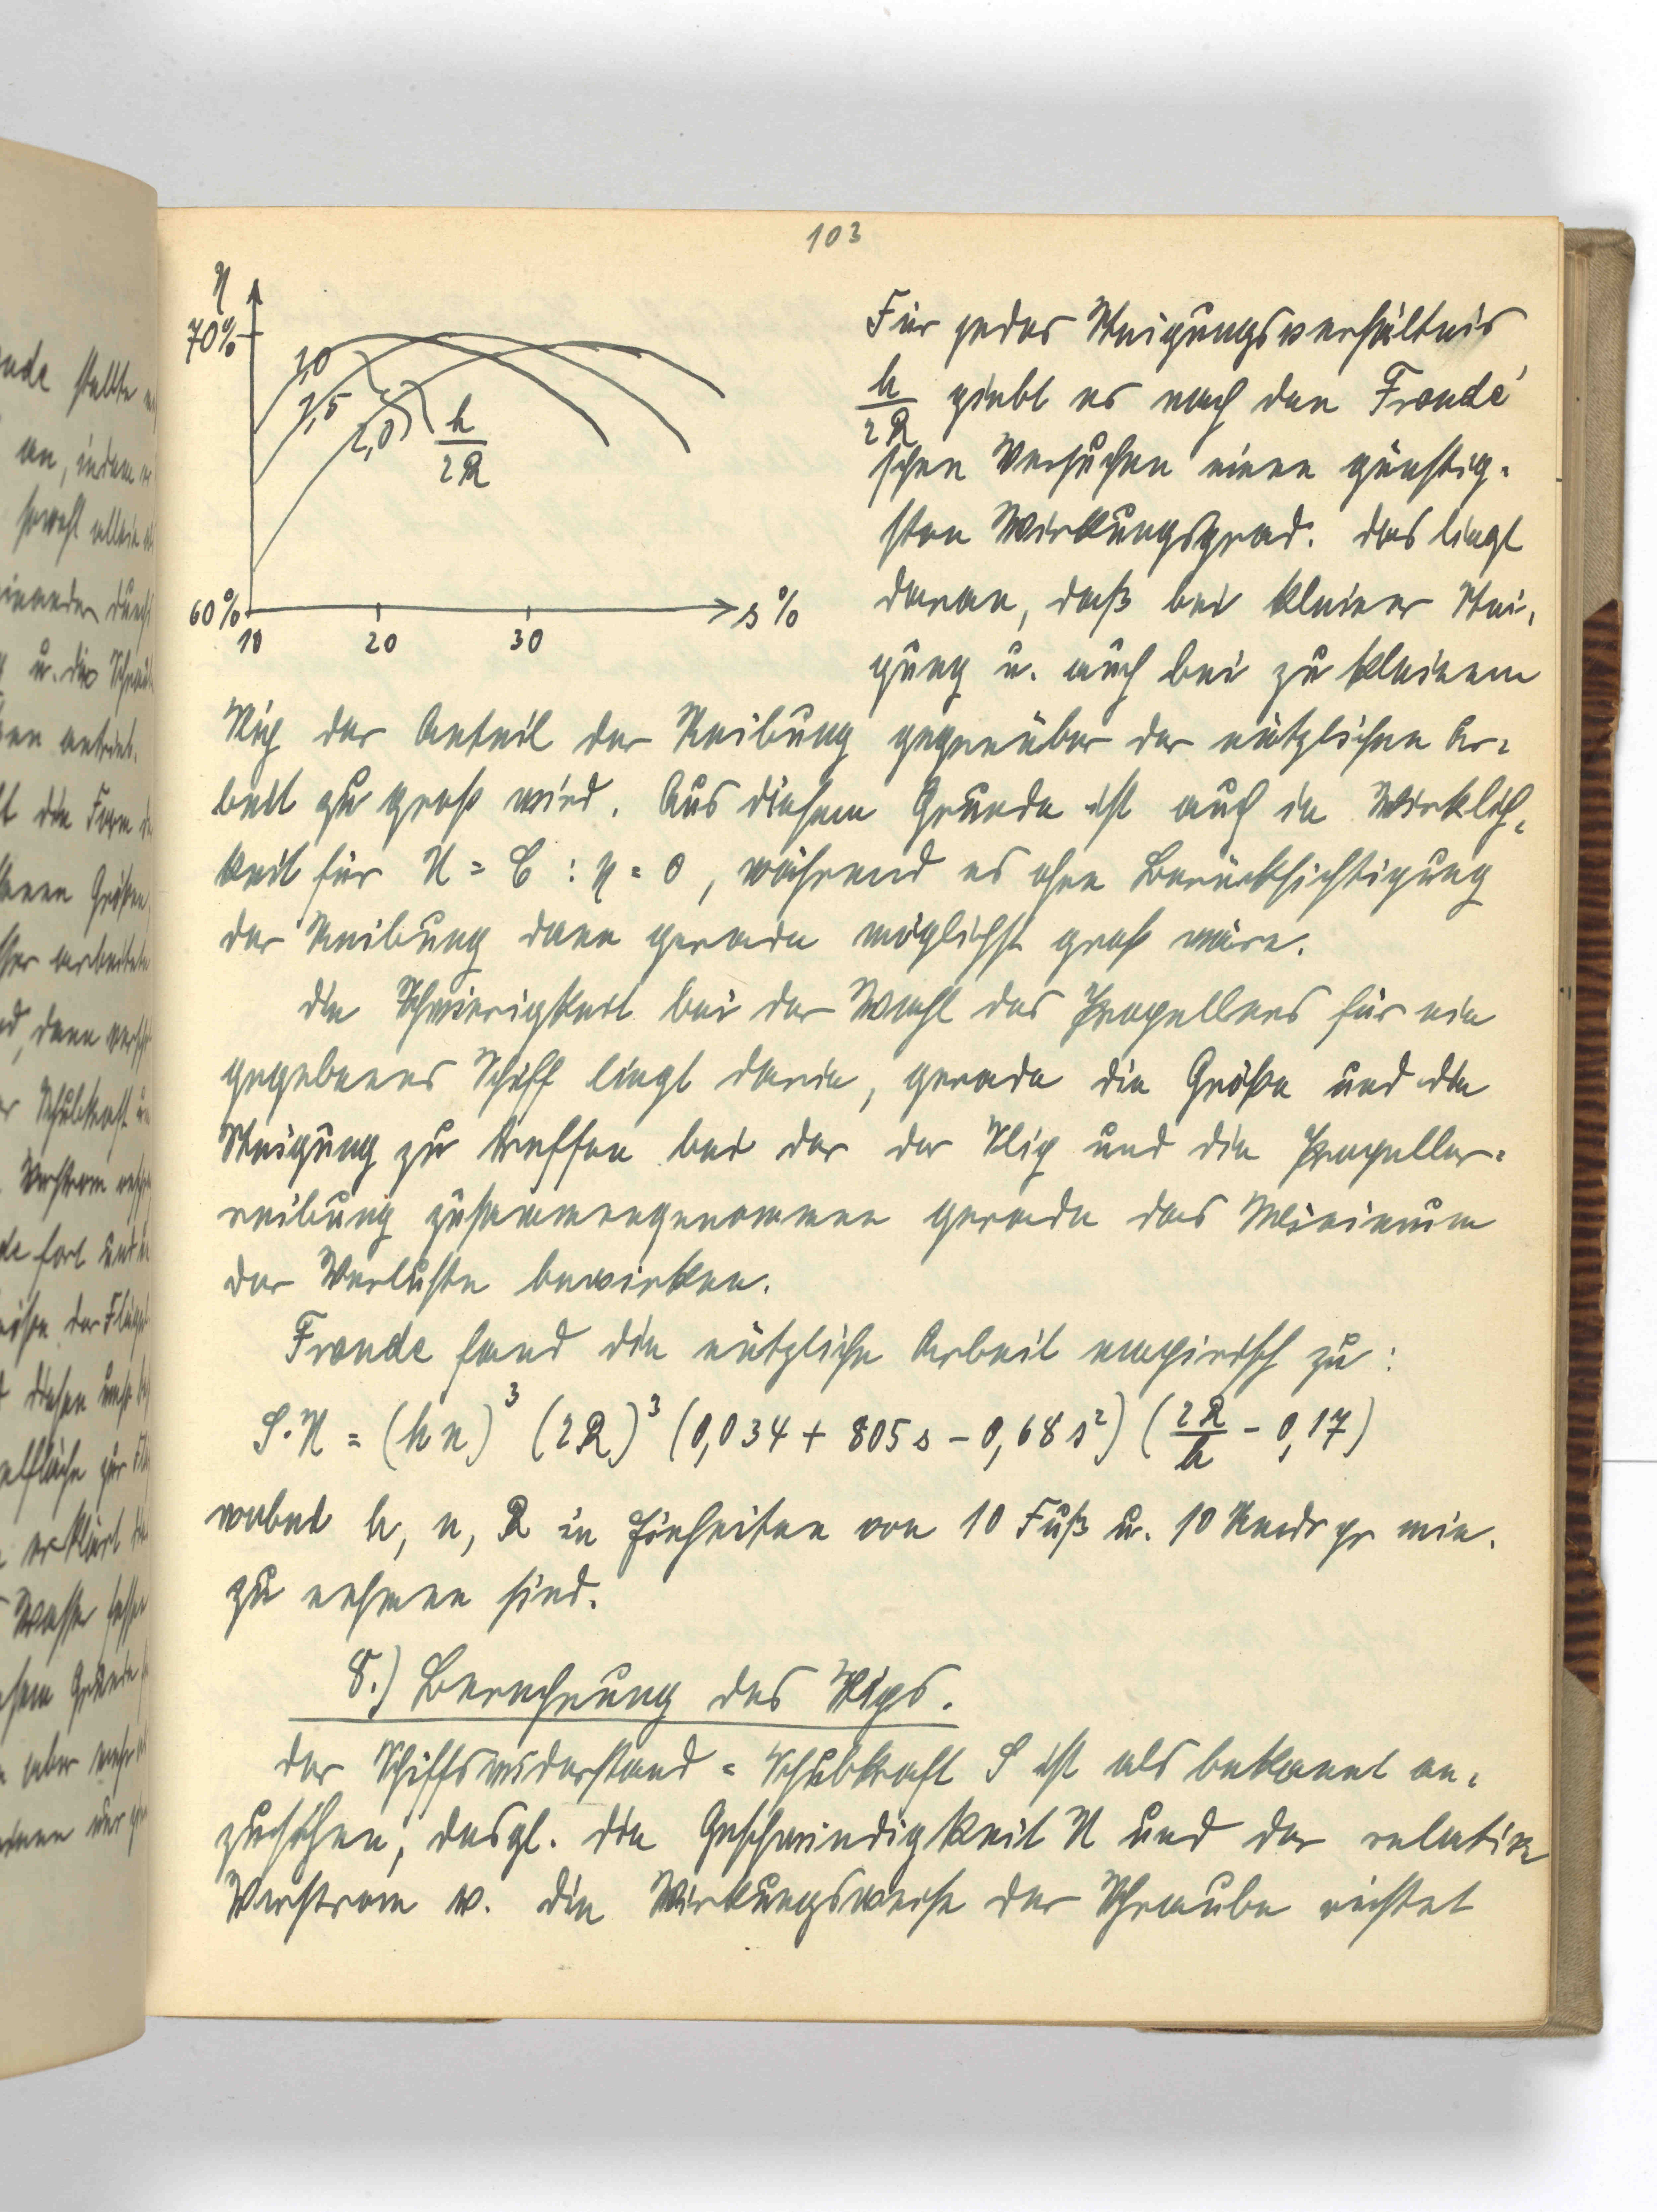 103
η
70%
1,0
1,5
2,0
h
2R
60%
10
20
30
s%
Für jedes Steigungsverhältnis
h/2R giebt es nach den Froude'
schen Versuchen einen günstig-
sten Wirkungsgrad. Das liegt
daran, daß bei kleiner Stei-
gung u. auch bei zu kleinem
Slip der Anteil der Reibung gegenüber der nützlichen Ar-
beit zu groß wird. Aus diesem Grunde ist auch in Wirklich-
keit für U = C : η = 0, während es ohne Berücksichtigung
der Reibung dann gerade möglichst groß wäre.
Die Schwierigkeit bei der Wahl des Propellers für ein
gegebenes Schiff liegt darin, gerade die Größe und die
Steigung zu treffen bei der der Slip und die Propeller-
reibung zusammengenommen gerade das Minimum
der Verluste bewirken.
Froude fand die nützliche Arbeit empirisch zu:
S.U = (hn)³ (2R)³ (0,034 + 805 s - 0,68 s²) (2R/h - 0,17)
wobei h, n, R in Einheiten von 10 Fuß u. 10 Umdr pr min.
zu nehmen sind.
8.) Berechnung des Slips.
Der Schiffswiderstand = Schubkraft S ist als bekannt an-
zusehen, desgl. die Geschwindigkeit U und der relative
Vorstrom v. Die Wirkungsweise der Schraube richtet